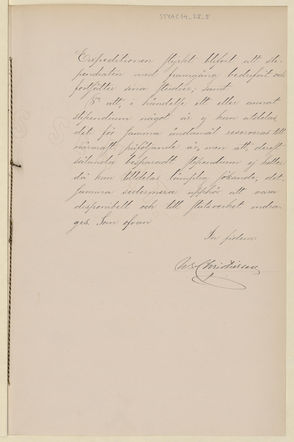 Expeditionen styrkt blifvit att sti-
pendiaten med framgång bedrifvit och
fortsätter sina studier; samt
5:o att, i händelse ett eller annat
stipendium något år ej kan utdelas,
det för samma ändamål reserveras till
närmast påföljande år, men att, derest
sålunda besparadt stipendium ej heller
då kan tilldelas lämplig sökande, det-
samma sedermera upphör att vara
disponibelt och till statsverket indra-
ges. Som ofvan
In fidem